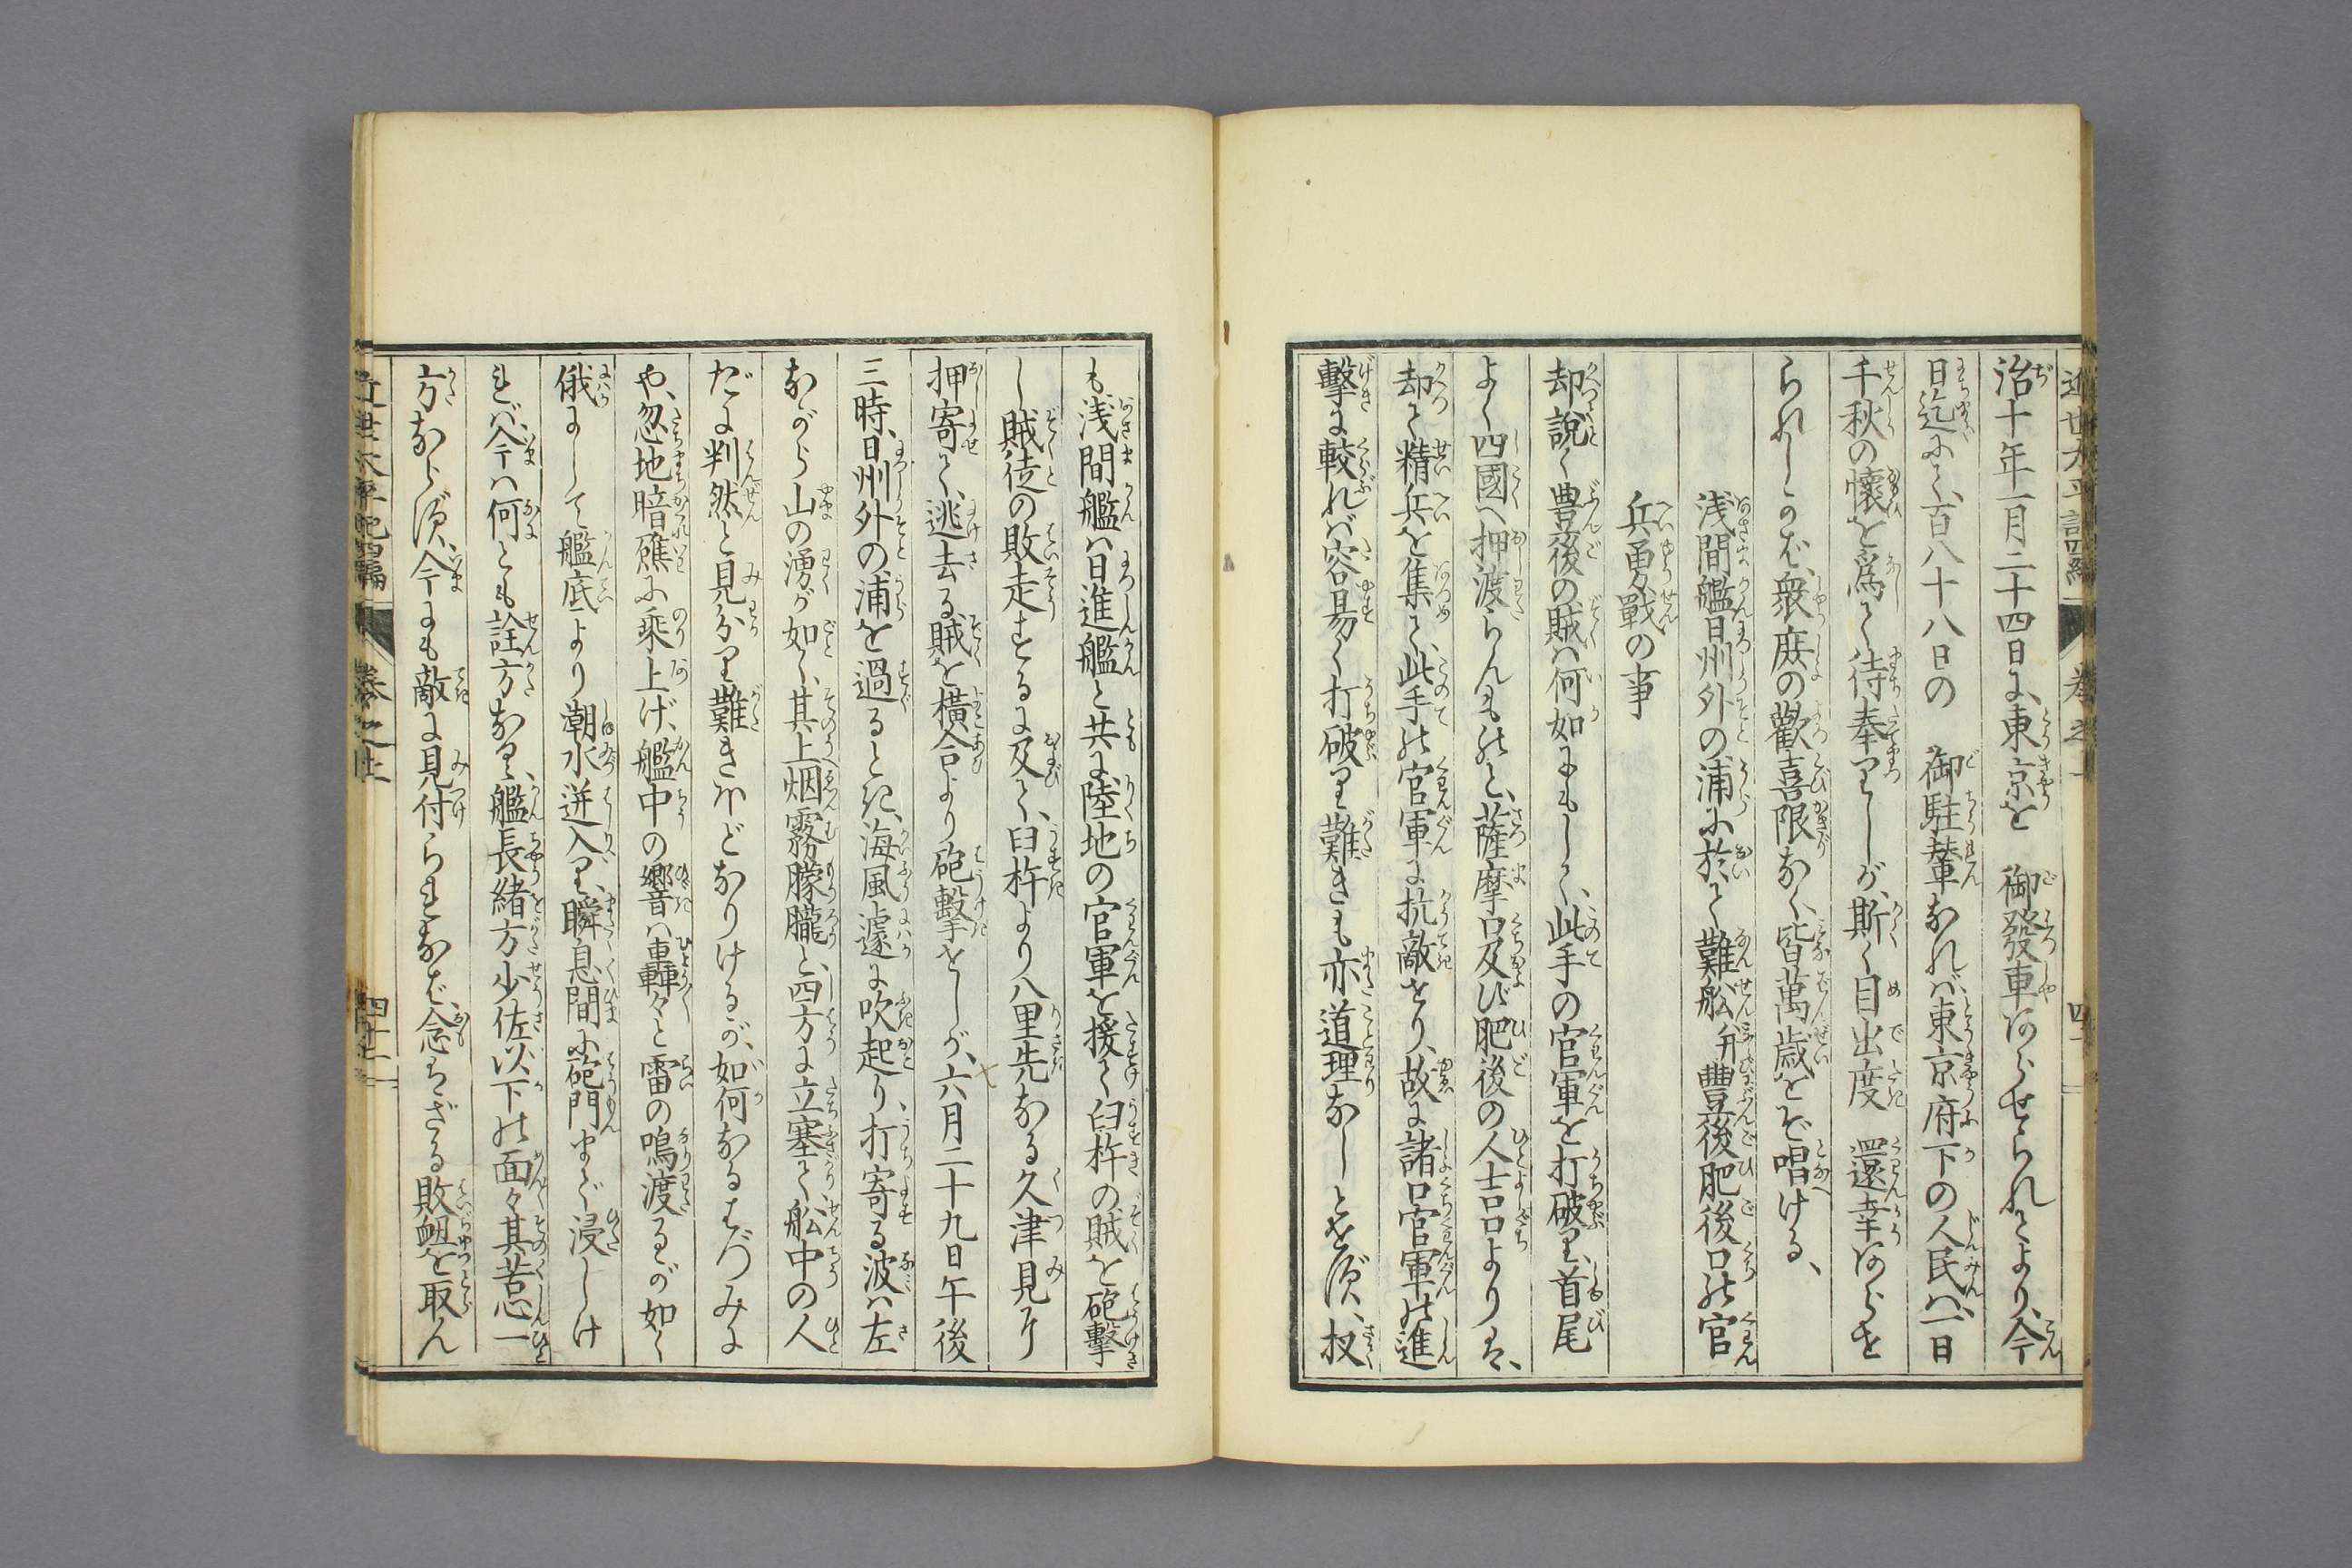 治十年一月二十四日に、東京を　御發車あらせられてより、今
日迄にて、百八十八日の　御駐輦なれば、東京府下の人民ハ、一日
千秋の懷を爲して待奉りしが、斯く目出度　還幸あらせ
られしかば、衆庶の歡喜限なく、皆萬歳をぞ唱ける、
浅間艦日州外の浦に於て難舩并豐後肥後口の官
兵勇戰の事
却説く豊後の賊ハ何如にもして、此手の官軍を打破り、首尾
よく四國へ押渡らんものと、薩摩口及び肥後の人吉口よりも、
却て精兵を集て、此手の官軍に抗敵せり、故に諸口官軍の進
擊に較れば容易く打破り難きも亦道理なしとせず、扨
も浅間艦ハ日進艦と共に陸地の官軍を援て臼杵の賊を砲擊
し賊徒の敗走するに及て、臼杵より八里先なる久津見に
押寄せて、逃去る賊を横合より砲擊をしが、六月二十九日午後
三時、日州外の浦を過るとき、海風遽に吹起り、打寄る波ハ左
ながら山の湧が如く、其上烟霧朦朧と、四方に立塞て、舩中の人
だに判然と見分り難きほどなりけるが、如何なるはづみに
や、忽地暗礁に乘上げ、艦中の響ハ轟々と雷の鳴渡るが如く
俄にして艦底より潮水迸入り、瞬息間に砲門まで浸しけ
れば、今ハ何とも詮方なり、艦長緒方少佐以下の面々其苦心一
方ならず、今にも敵に見付られなば、念はざる敗衄を取ん
近世太平記四編　卷之一　四十一
近世太平記四編　卷之一　四十二